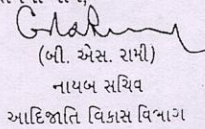 (બી. એસ. રામી)
નાયબ સચિવ
આદિજાતિ વિકાસ વિભાગ